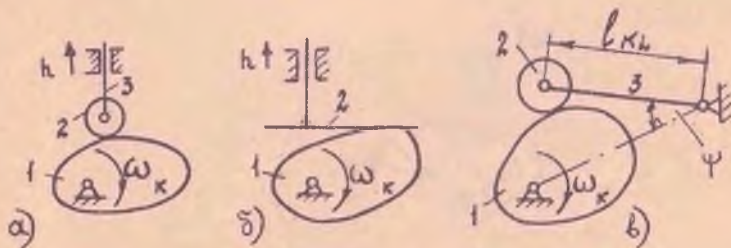 h 3
2
1 ωк
а)
h
2
1 ωк
б)
2 lкL
3
ψ
1 ωк
в)